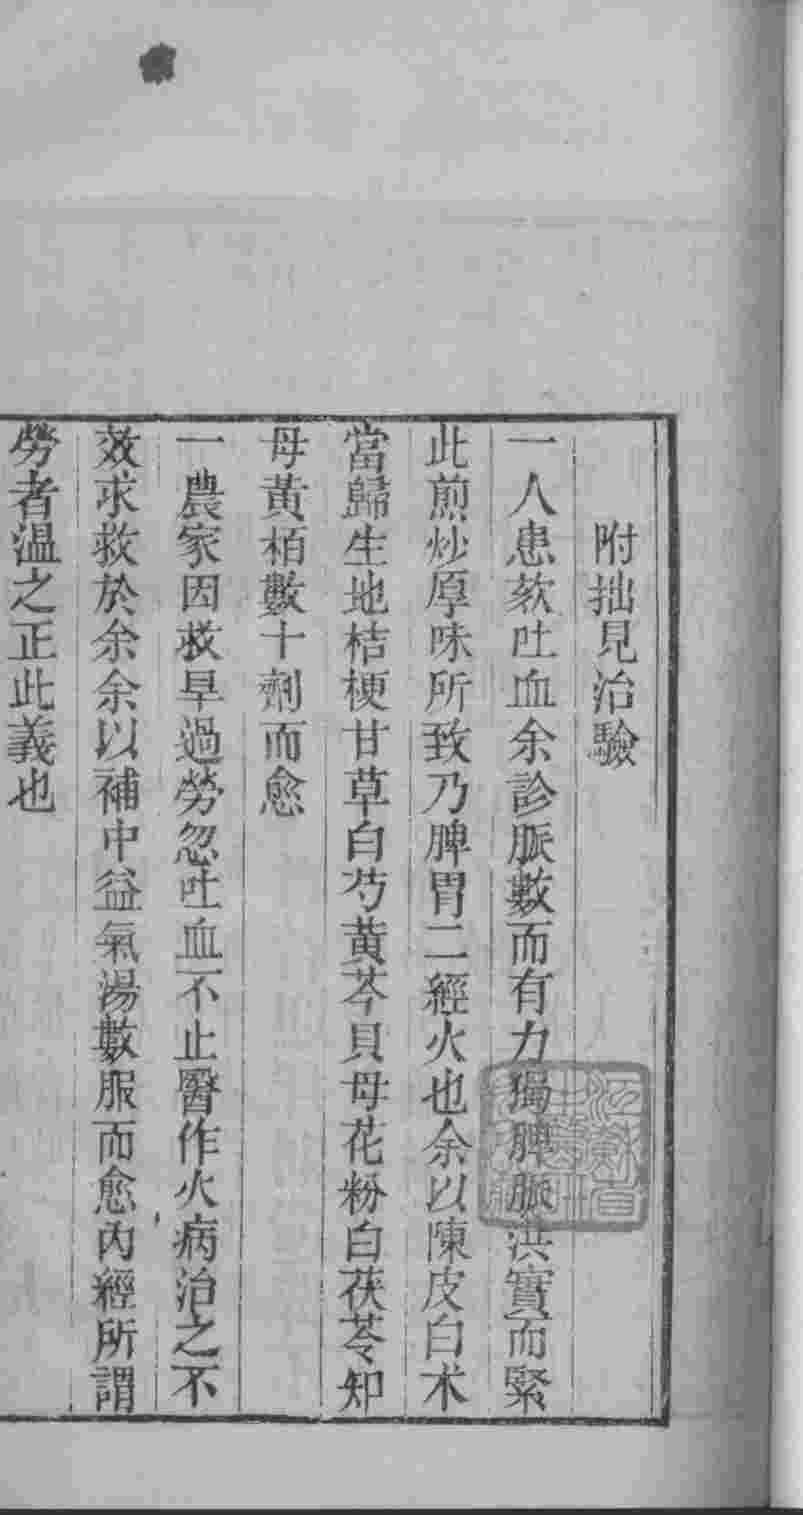 附拙見治驗
一人患欬吐血余診脈數而有力獨脾脈洪實而緊
此煎炒厚味所致乃脾胃二經火也余以陳皮白术
當歸生地桔梗甘草白芍黃芩貝母花粉白茯苓知
母黃栢數十劑而愈
一農家因救旱過勞忽吐血不止醫作火病治之不
效求救於余余以補中益氣湯數服而愈內經所謂
勞者温之正此義也